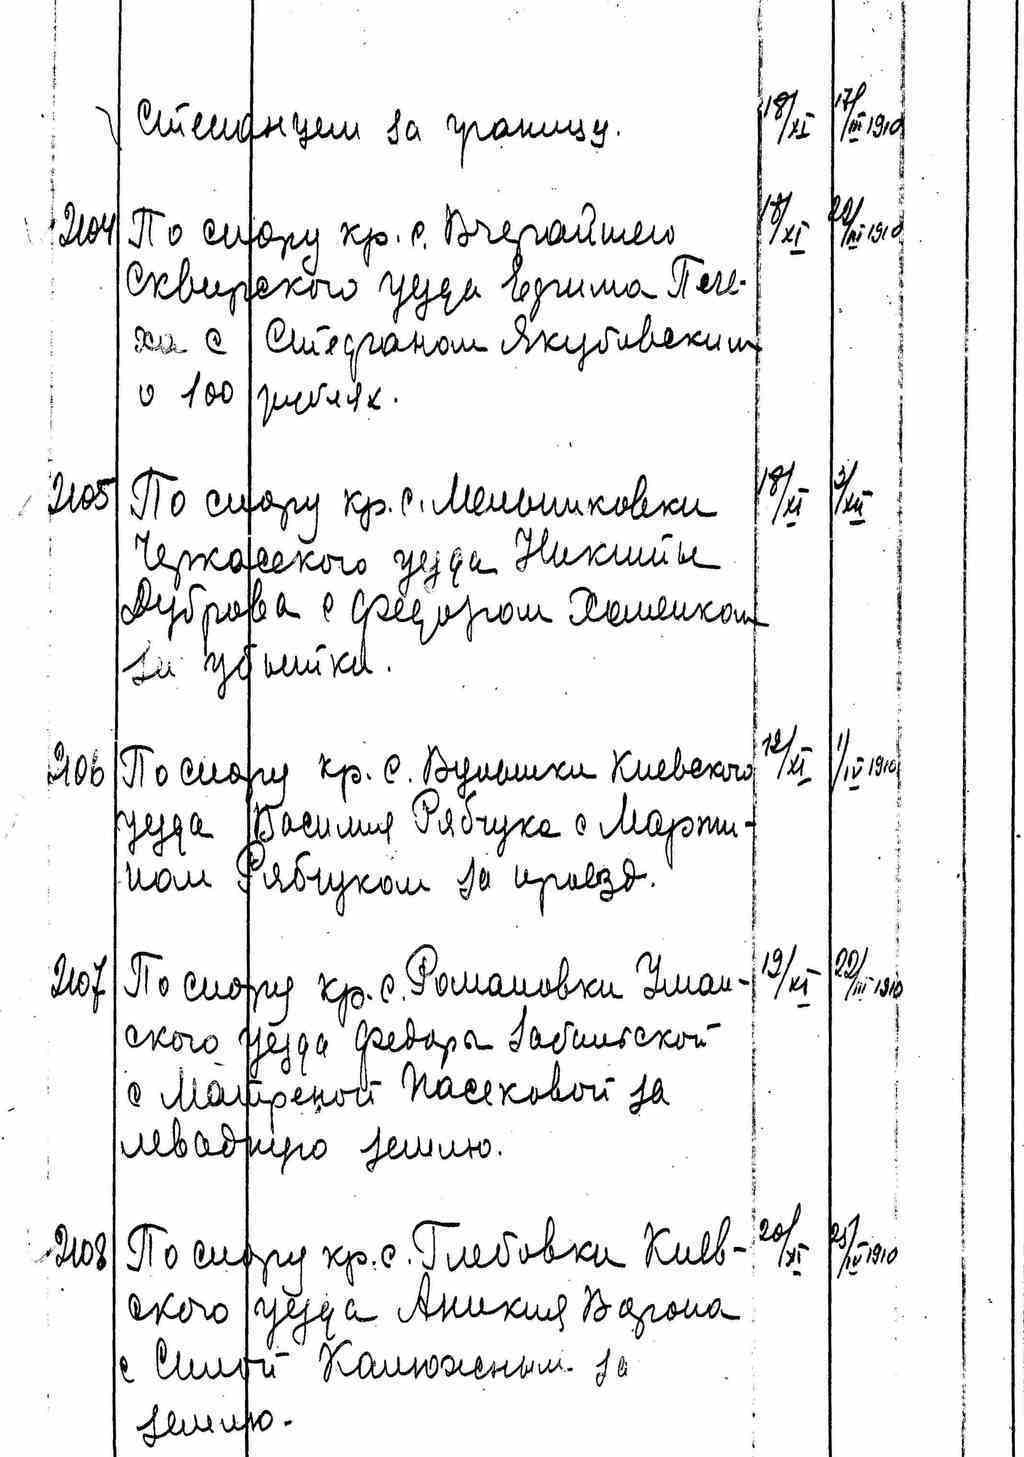 за границу. 18/XI 17/III 1910
2104 По спору кр. с. Вчерайшего 18/XI 20/III 1910
Сквирского уезда Ефима Пете-
ха с Стефаном Якубовским
о 100 рублях.
2105 По спору кр. с. Мельниковки 18/XI 3/XII
Черкасского уезда Никиты
Дуброва с Федором Хоменком
за убытки.
2106 По спору кр. с. Вульшки Киевского 12/XI 1/IV 1910
уезда Василия Рябчука с Марти-
ном Рябчуком за проезд.
2107 По спору кр. с. Романовки Уман- 19/XI 22/III 1910
ского уезда Федоры
с Матреной Пасековой за
левадную землю.
2108 По спору кр. с. Глебовки Киев- 20/XI 25/IV 1910
ского уезда Аникия Ворона
с Силой Калюжным за
землю.